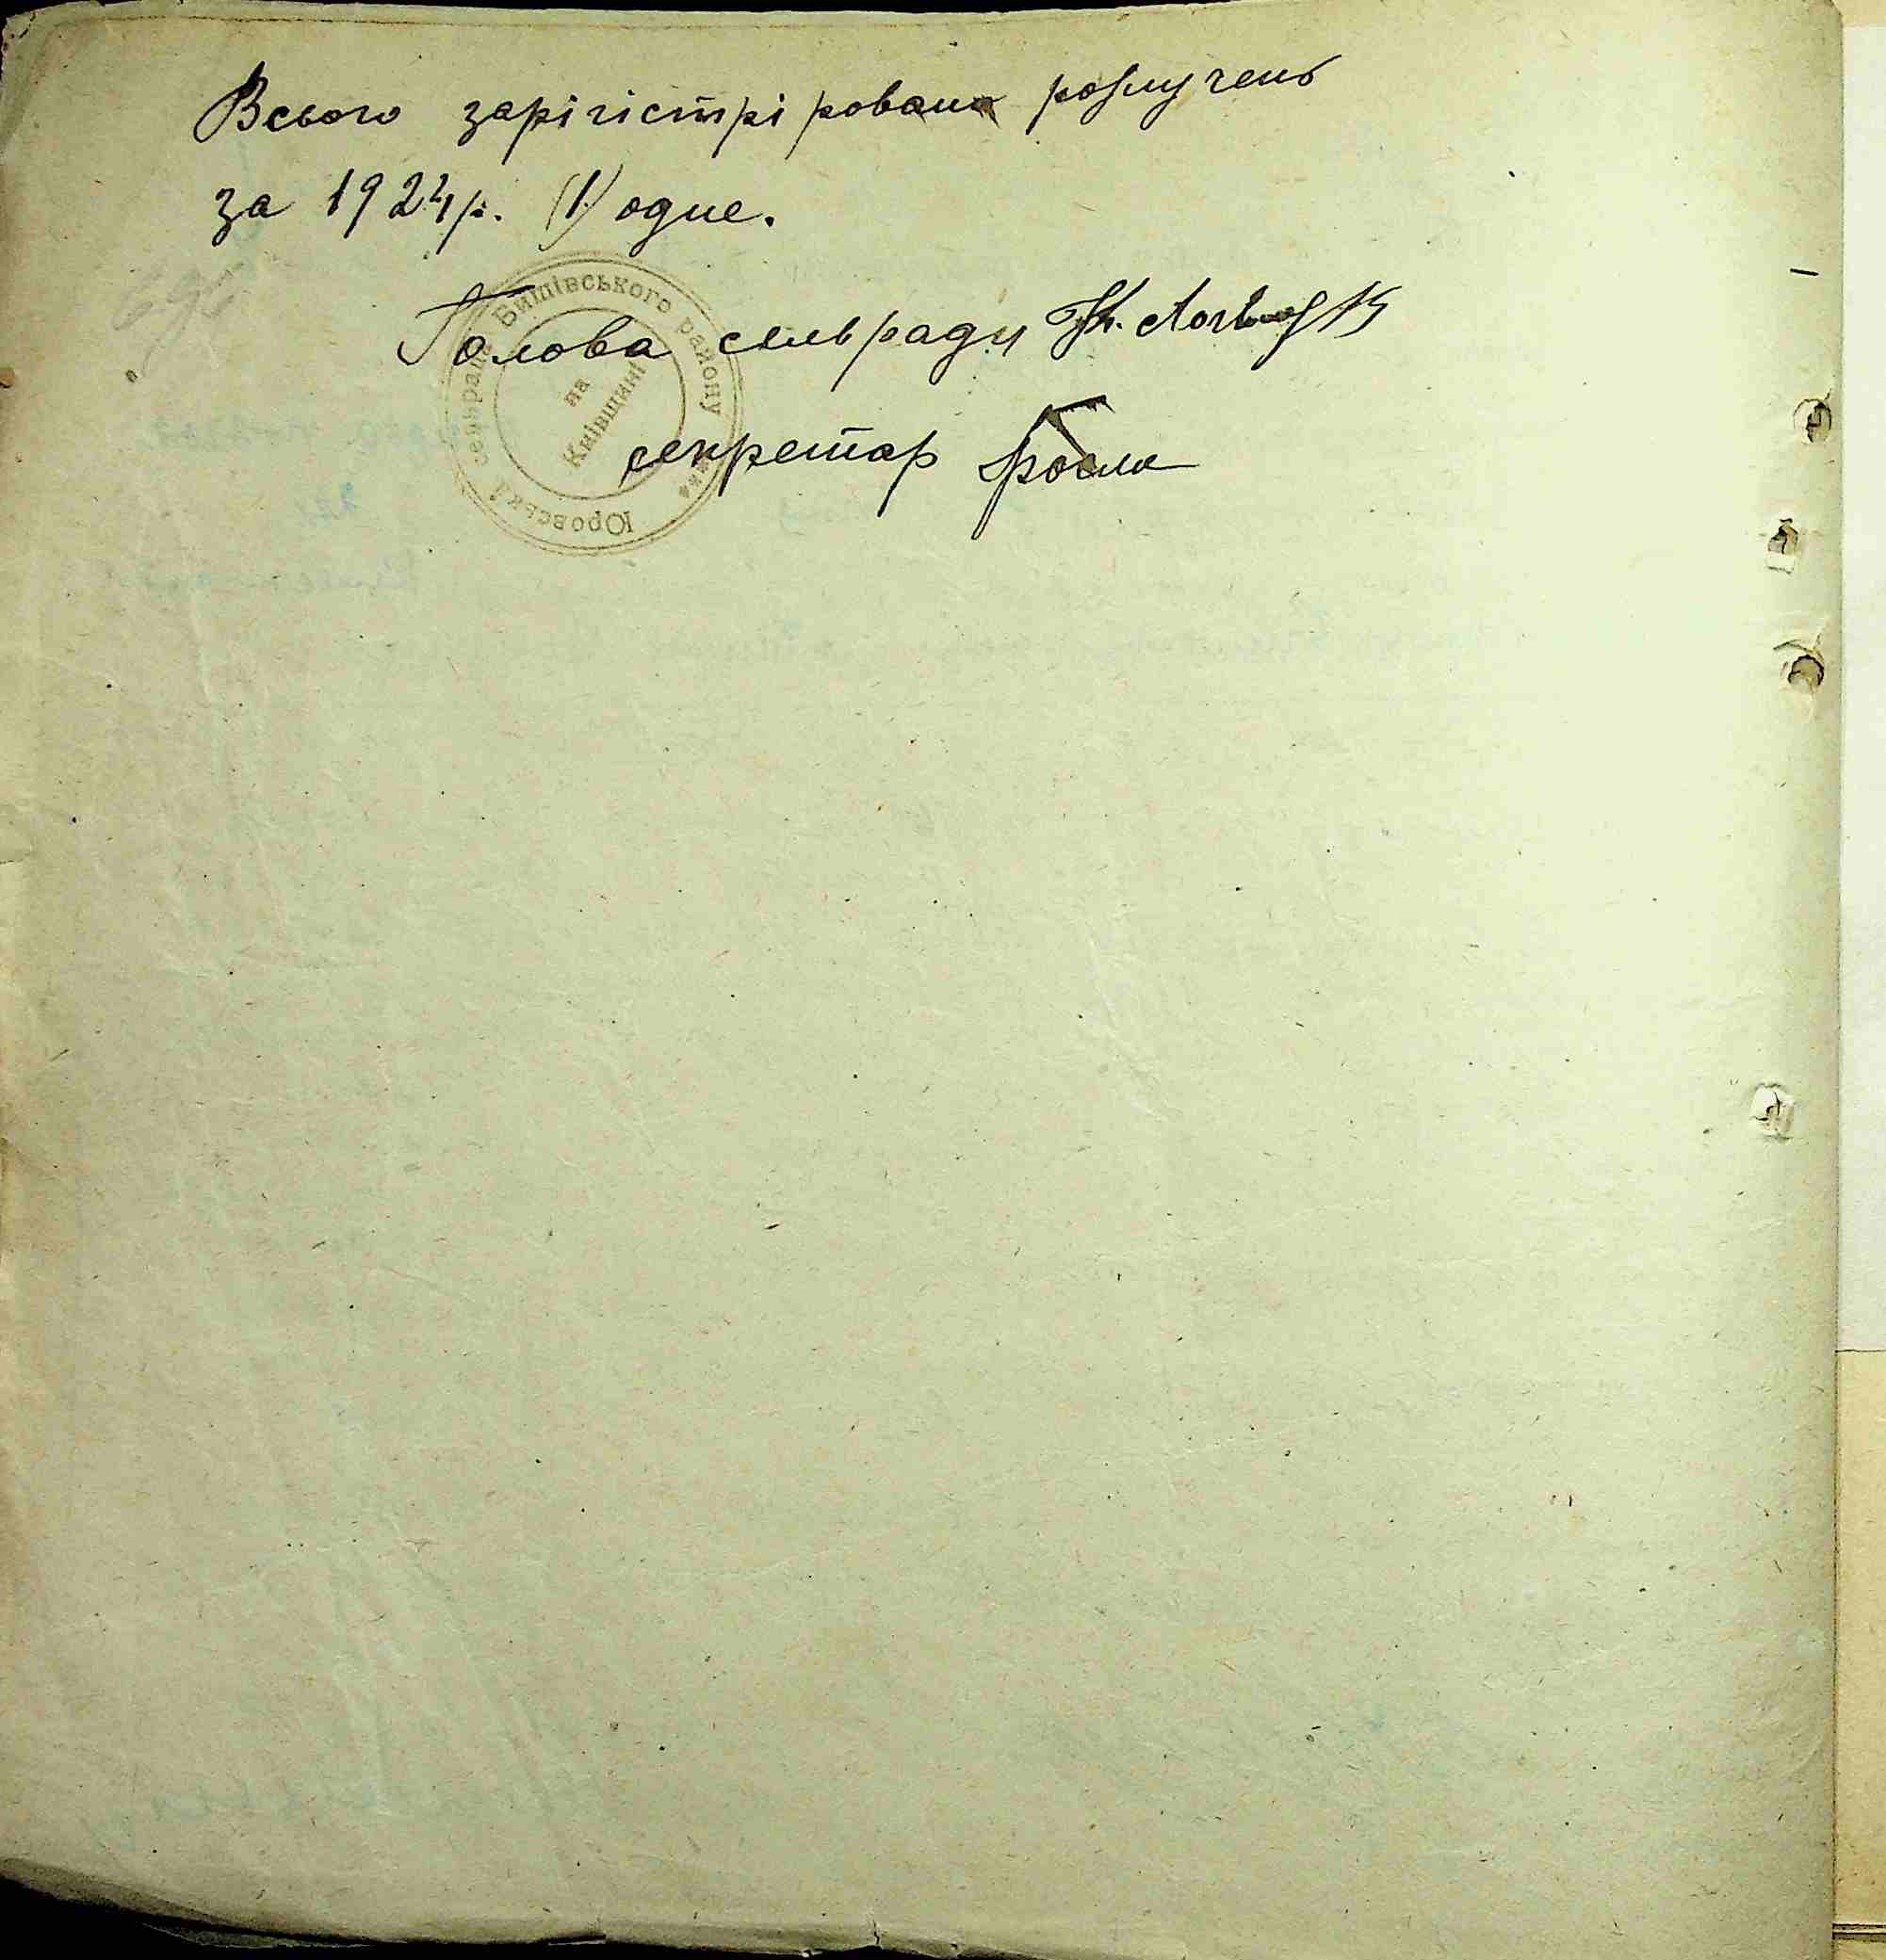 Всього зарігістріровано розлучень
за 1924р. (1) одне.
Голова сельради
секретар
Юровська сельрада Бишівського району
на
Київщині